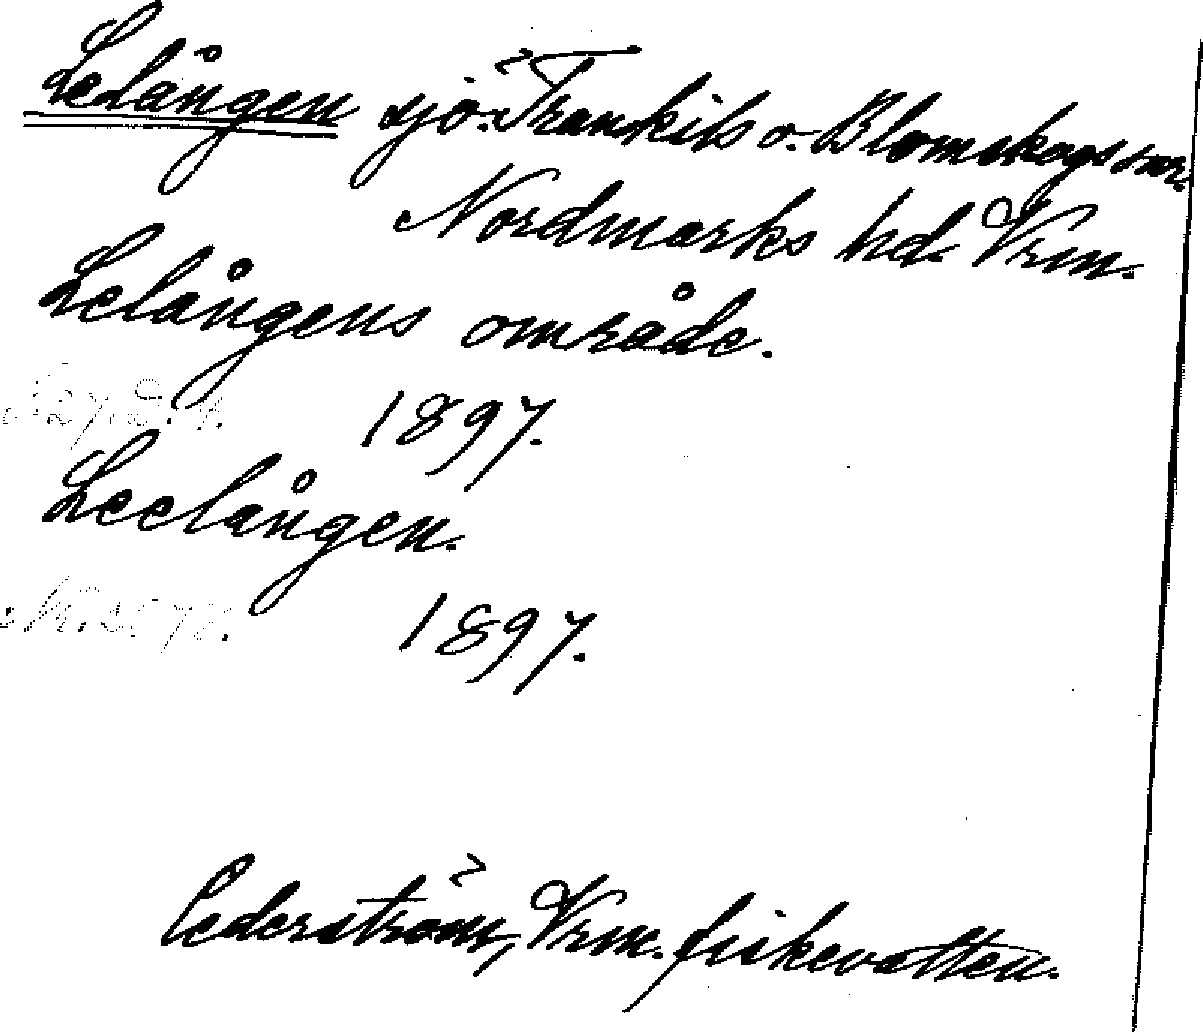 Lelången sjö. Trankils o. Blomskogs snr.
Nordmarks hd. Vrm.
Lelångens område.
1897.
Leelången.
1897.
Cederström, Vrm. fiskevatten.